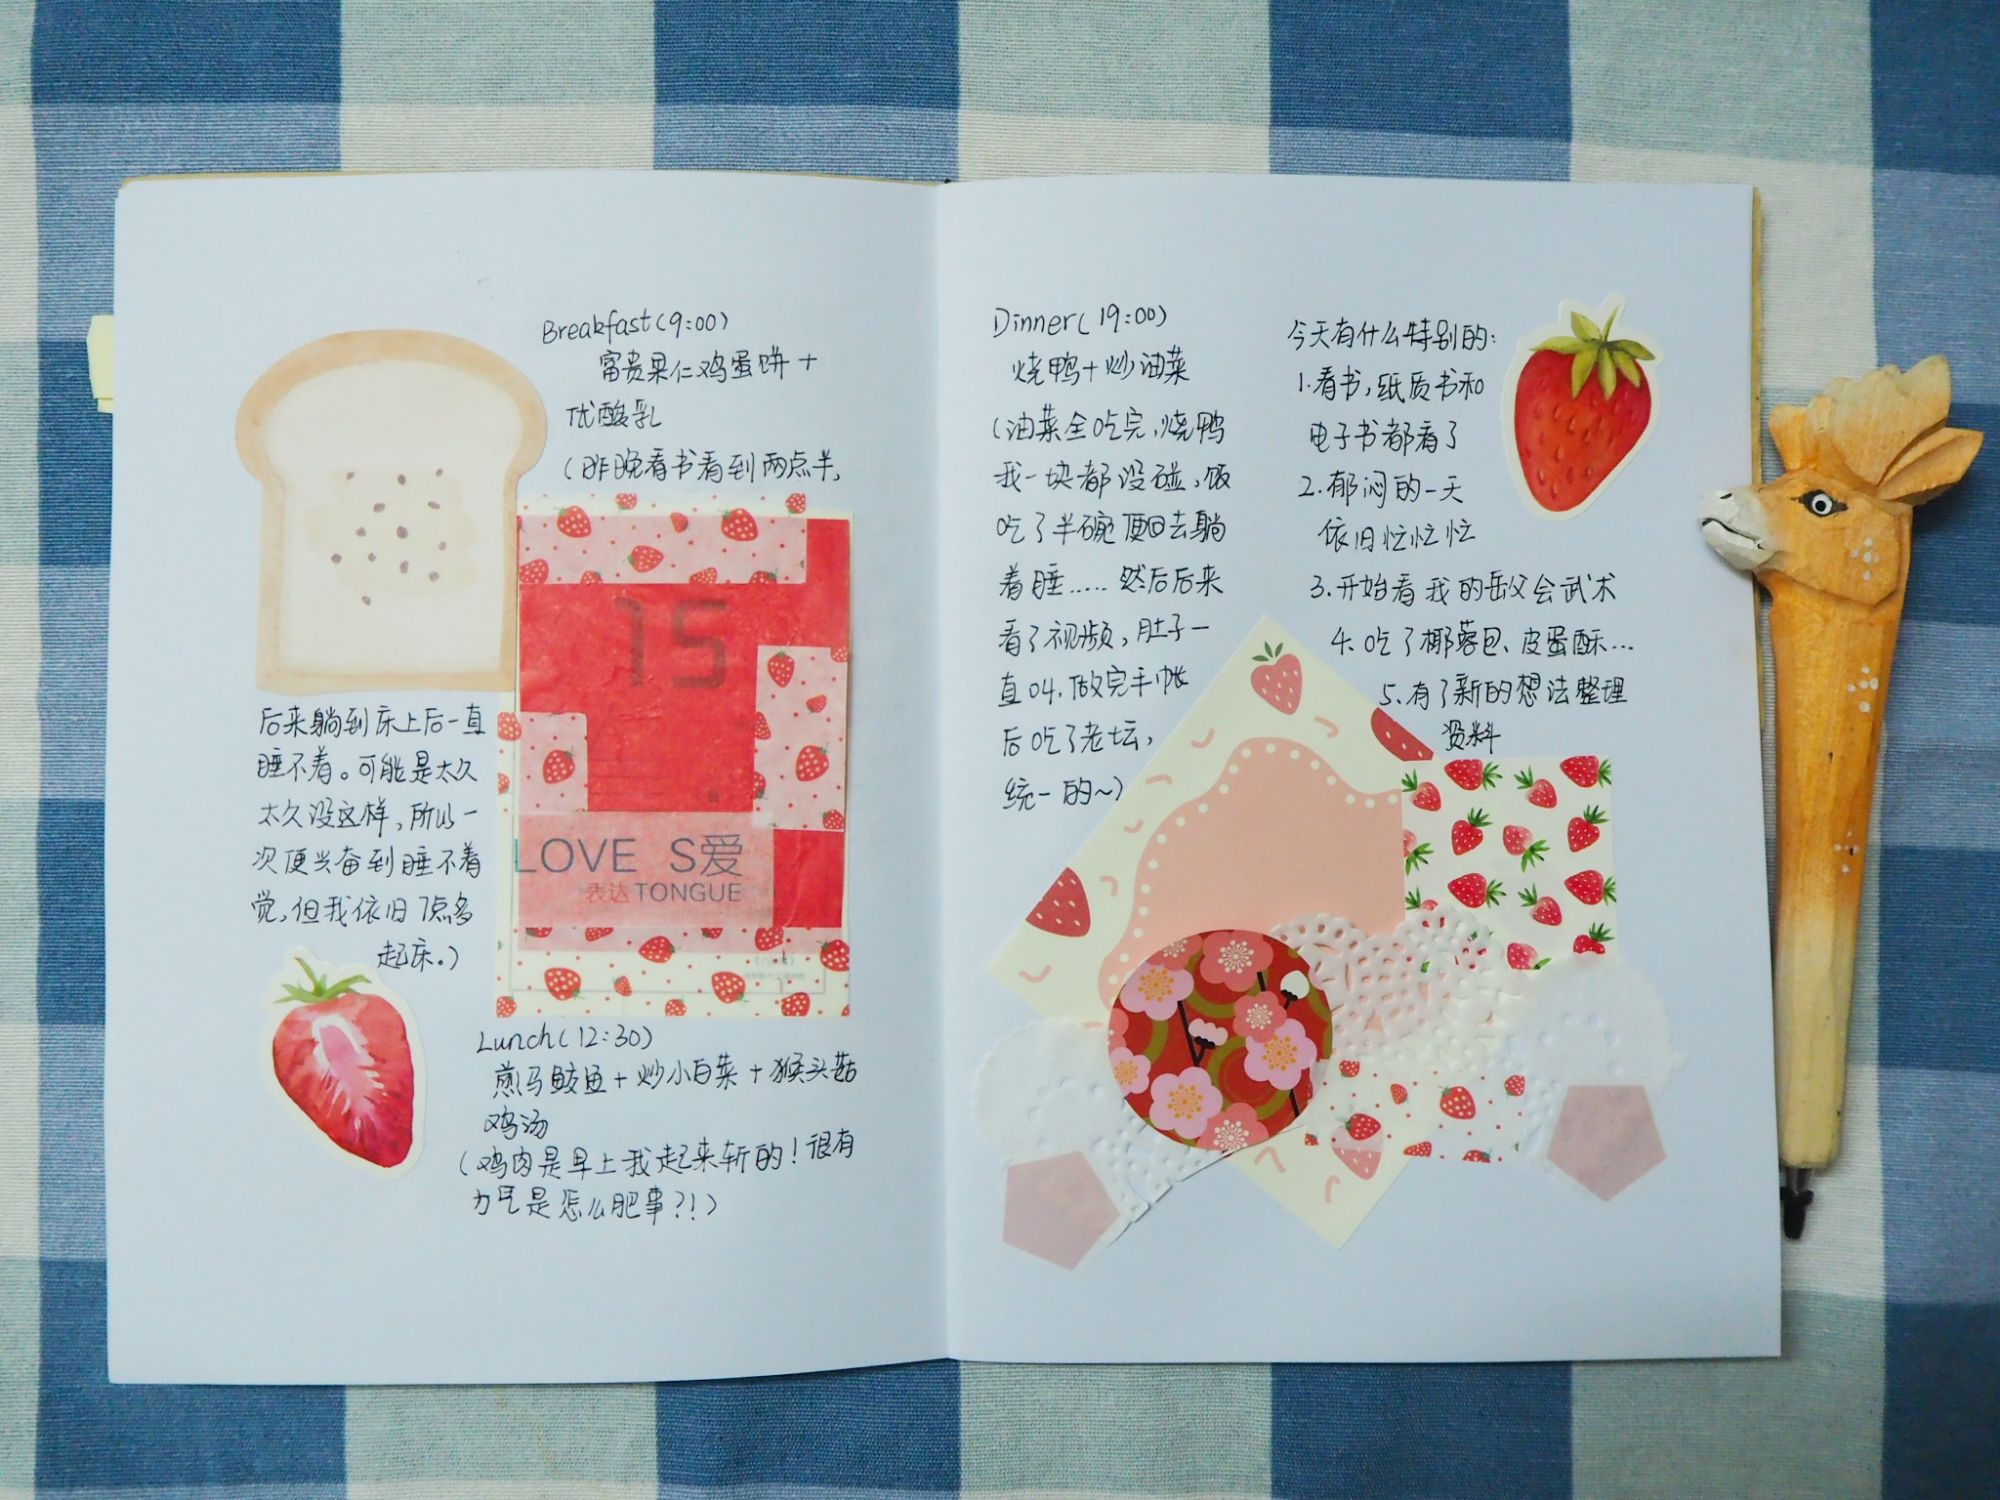 Breakfast(9:00)
富贵果仁鸡蛋饼+
优酸乳
(昨晚看书看到两点半,
后来躺到床上后一直
睡不着。可能是太久
太久没这样,所以一
次便兴奋到睡不着
觉,但我依旧7点多
起床。)
15
LOVE S爱
表达TONGUE
Lunch(12:30)
煎马鲛鱼+炒小白菜+猴头菇
鸡汤
(鸡肉是早上我起来斩的!很有
力气是怎么肥事?!)
Dinner(19:00)
烧鸭+炒油菜
(油菜全吃完,烧鸭
我一块都没碰,饭
吃了半碗便回去躺
着睡……然后后来
看了视频,肚子一
直04,做完手帐
后吃了老坛,
统一的~)
今天有什么特别的:
1.看书,纸质书和
电子书都看了
2.郁闷的一天
依旧忙忙忙
3.开始看我的岳父会武术
4.吃了椰蓉包、皮蛋酥…
5.有了新的想法整理
资料